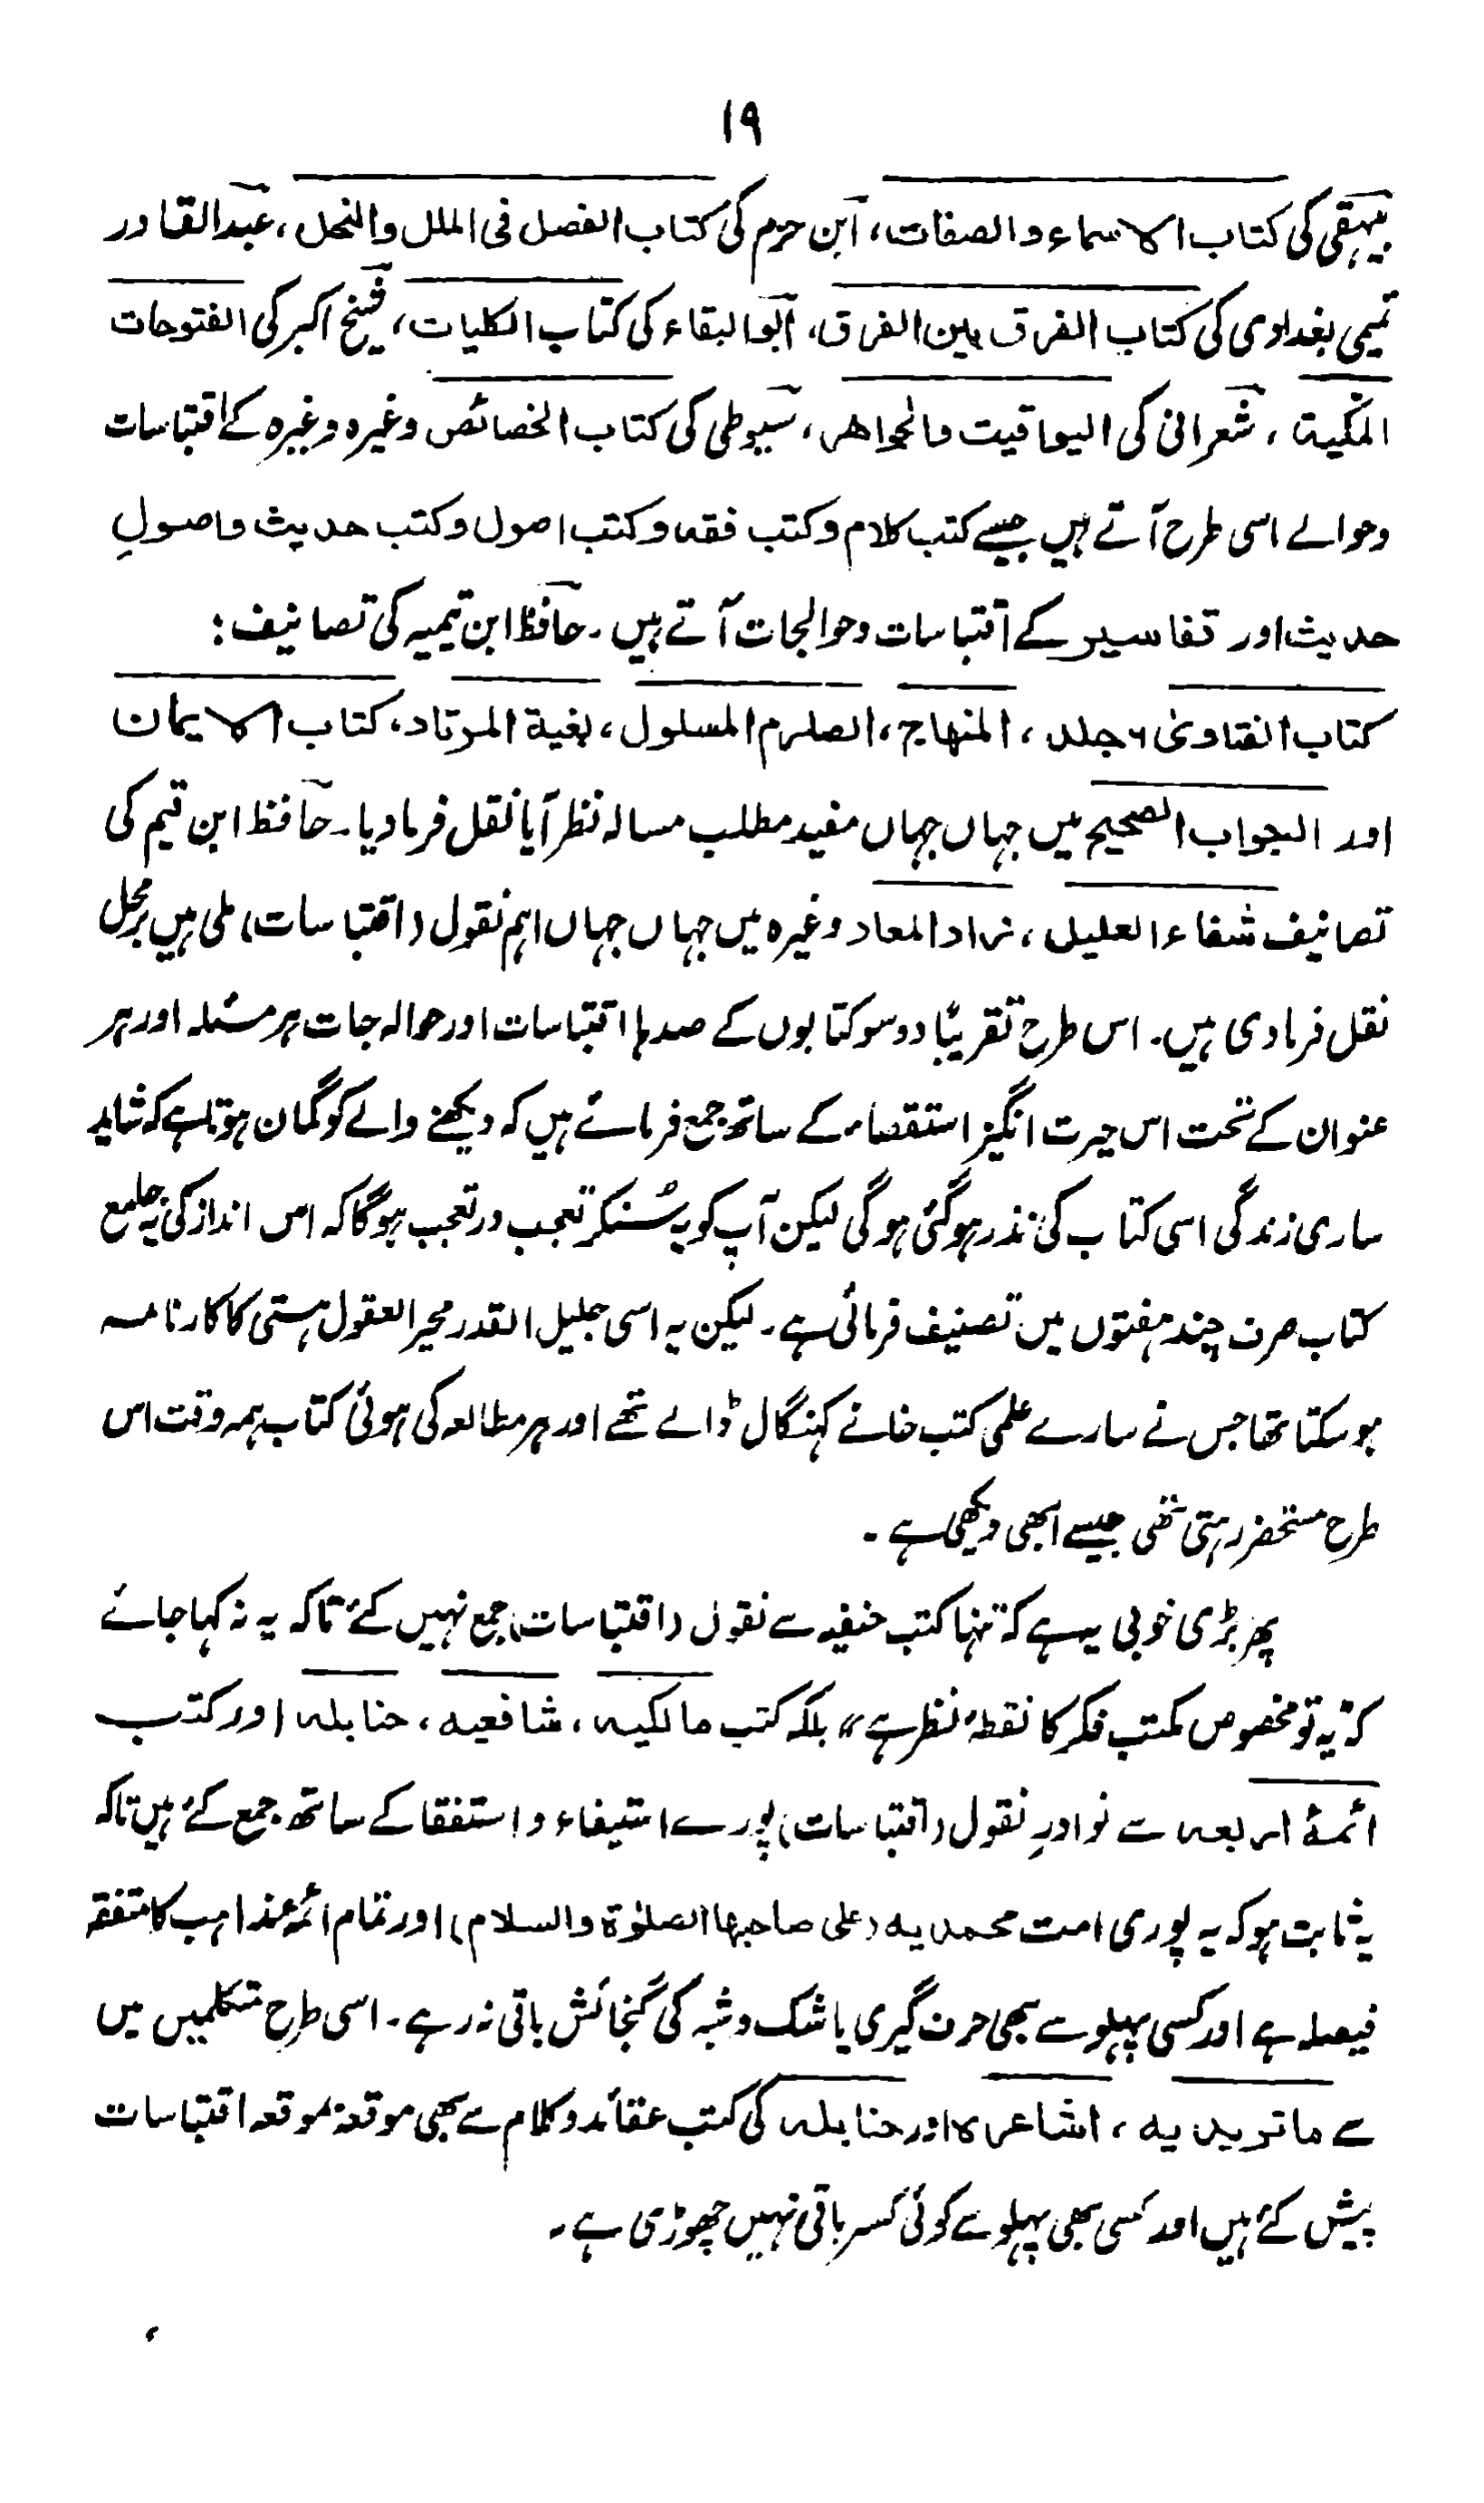 ۱۹
بیہقی کی کتاب الاسماء والصفات، ابن حزم کی کتاب الفصل فی الملل والنحل، عبدالقادر
تمیمی بغدادی کی کتاب الفرق بین الفرق، ابوالبقاء کی کتاب الکلیات، شیخ اکبر کی الفتوحات
المکیۃ، شعرانی کی الیواقیت والجواھر، سیوطی کی کتاب الخصائص وغیرہ وغیرہ کے اقتباسات
وحوالے اسی طرح آتے ہیں جیسے کتب کلام وکتب فقہ وکتب اصول وکتب حدیث واصولِ
حدیث اور تفاسیر کے اقتباسات وحوالجات آتے ہیں۔ حافظ ابن تیمیہ کی تصانیف:
کتاب الفتاویٰ ۶ جلد، المنہاج، الصارم المسلول، بغیۃ المرتاد، کتاب الایمان
اور الجواب الصحیح میں جہاں جہاں مفید مطلب مسالہ نظر آیا نقل فرمادیا۔ حافظ ابن قیم کی
تصانیف شفاء العلیل، زاد المعاد وغیرہ میں جہاں جہاں اہم نقول (اقتباسات) ملی ہیں برمحل
نقل فرمادی ہیں۔ اس طرح تقریبًا دو سو کتابوں کے صدہا اقتباسات اور حوالہ جات ہر مسئلہ اور ہر
عنوان کے تحت اس حیرت انگیز استقصاء کے ساتھ جمع فرمائے ہیں کہ دیکھنے والے کو گمان ہوتا ہے کہ شاید
ساری زندگی اسی کتاب کی نذر ہوگئی ہوگی لیکن آپ کو یہ سُنکر تعجب در تعجب ہوگا کہ اس انداز کی یہ جامع
کتاب صرف چند ہفتوں میں تصنیف فرمائی ہے۔ لیکن یہ اسی جلیل القدر محیر العقول ہستی کا کارنامہ
ہوسکتا تھا جس نے سارے علمی کتب خانے کہنگال ڈالے تھے اور ہر مطالعہ کی ہوئی کتاب ہمہ وقت اس
طرح مستحضر رہتی تھی جیسے ابھی دیکھی ہے۔
پھر بڑی خوبی یہ ہے کہ تنہا کتب حنفیہ سے نقول (اقتباسات) جمع نہیں کئے تاکہ یہ نہ کہا جائے
کہ "یہ تو مخصوص مکتب فکر کا نقطۂ نظر ہے" بلکہ کتب مالکیہ، شافعیہ، حنابلہ اور کتب
ائمۂ اربعہ سے نوادرِ نقول (اقتباسات) پورے استیفاء و استقصا کے ساتھ جمع کئے ہیں تاکہ
یہ ثابت ہو کہ یہ پوری امت محمدیہ (علی صاحبہا الصلوٰۃ والسلام) اور تمام ائمہ مذاہب کا متفقہ
فیصلہ ہے اور کسی پہلو سے بھی حرف گیری یا شک وشبہ کی گنجائش باقی نہ رہے۔ اسی طرح متکلمین میں
سے ماتریدیہ، اشاعرہ اور حنابلہ کی کتب عقائد وکلام سے بھی موقعہ بموقعہ اقتباسات
پیش کئے ہیں اور کسی بھی پہلو سے کوئی کسر باقی نہیں چھوڑی ہے۔